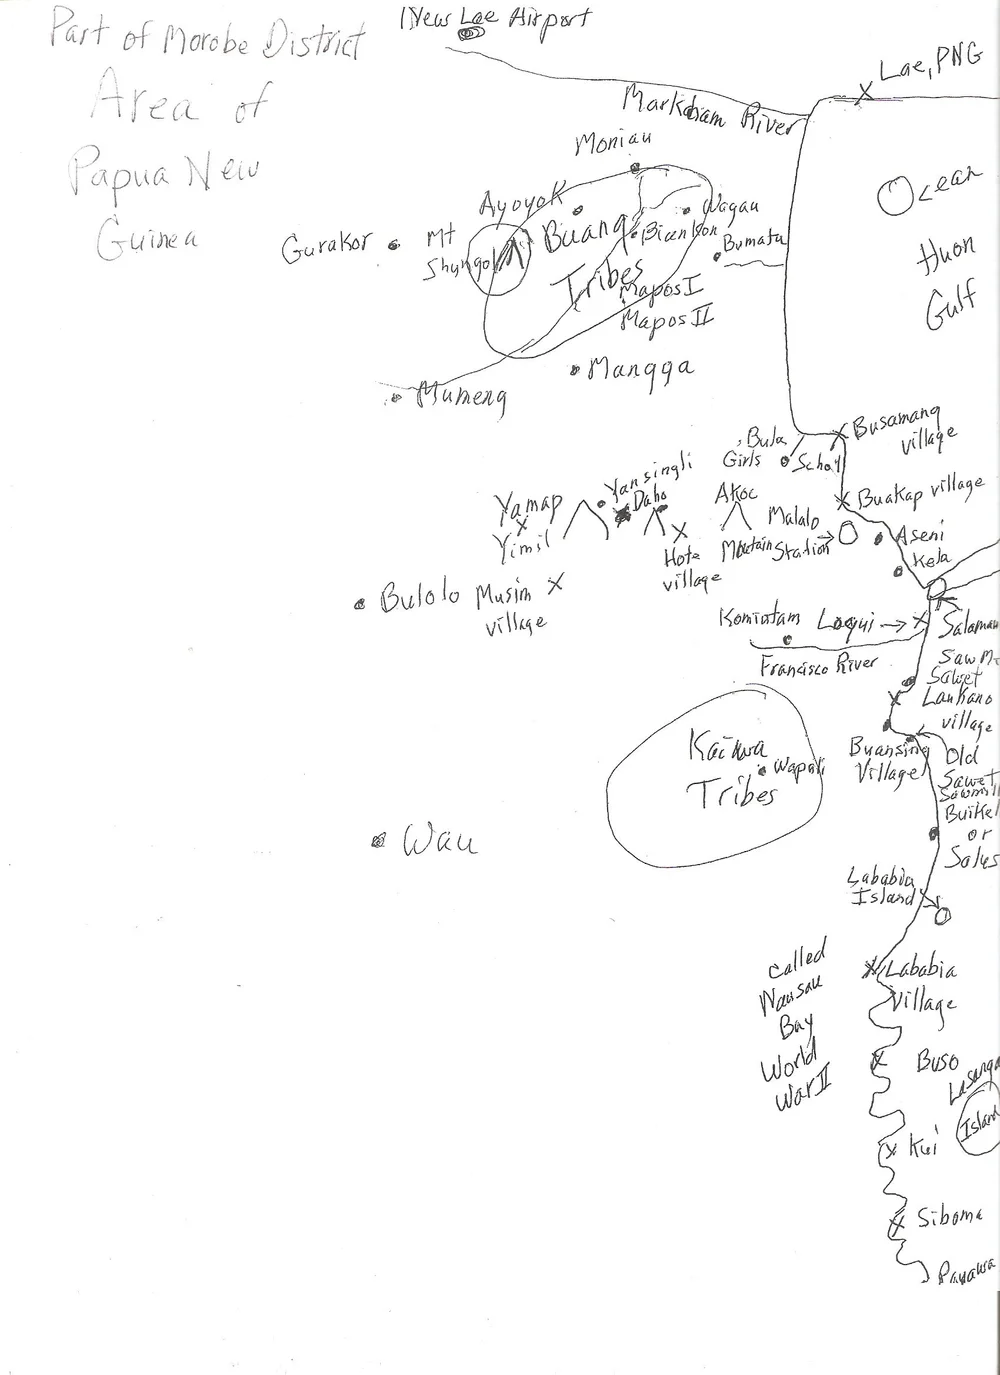 New Lae Airport
Part of Morobe District
Area of
Papua New
Guinea
Lae, PNG
Markham River
Moniau
Ocean
Huon
Gulf
Ayoyok
Wagau
Buang
Tribes
Bienkon
Bumatu
Gurakor
Mt
Shungol
Mapos I
Mapos II
Mangga
Mumeng
Busamang
village
Bula
Girls
School
Yansingli
Daho
Yamap
Yimil
Akoc
Mountain
Malalo
Station
Buakap village
Aseni
Kela
Hote
village
Bulolo
Musim
village
Komiatam
Loqui
Salamau
Francisco River
Saw Mi
Sawet
Laukano
village
Kaiwa
Tribes
Wapali
Buansing
Village
Old
Sawet
Sawmill
Buikel
or
Salus
Wau
Lababia
Island
Lababia
Village
called
Nausau
Bay
World
War II
Buso
Lasanga
Island
Kui
Siboma
Paiawa